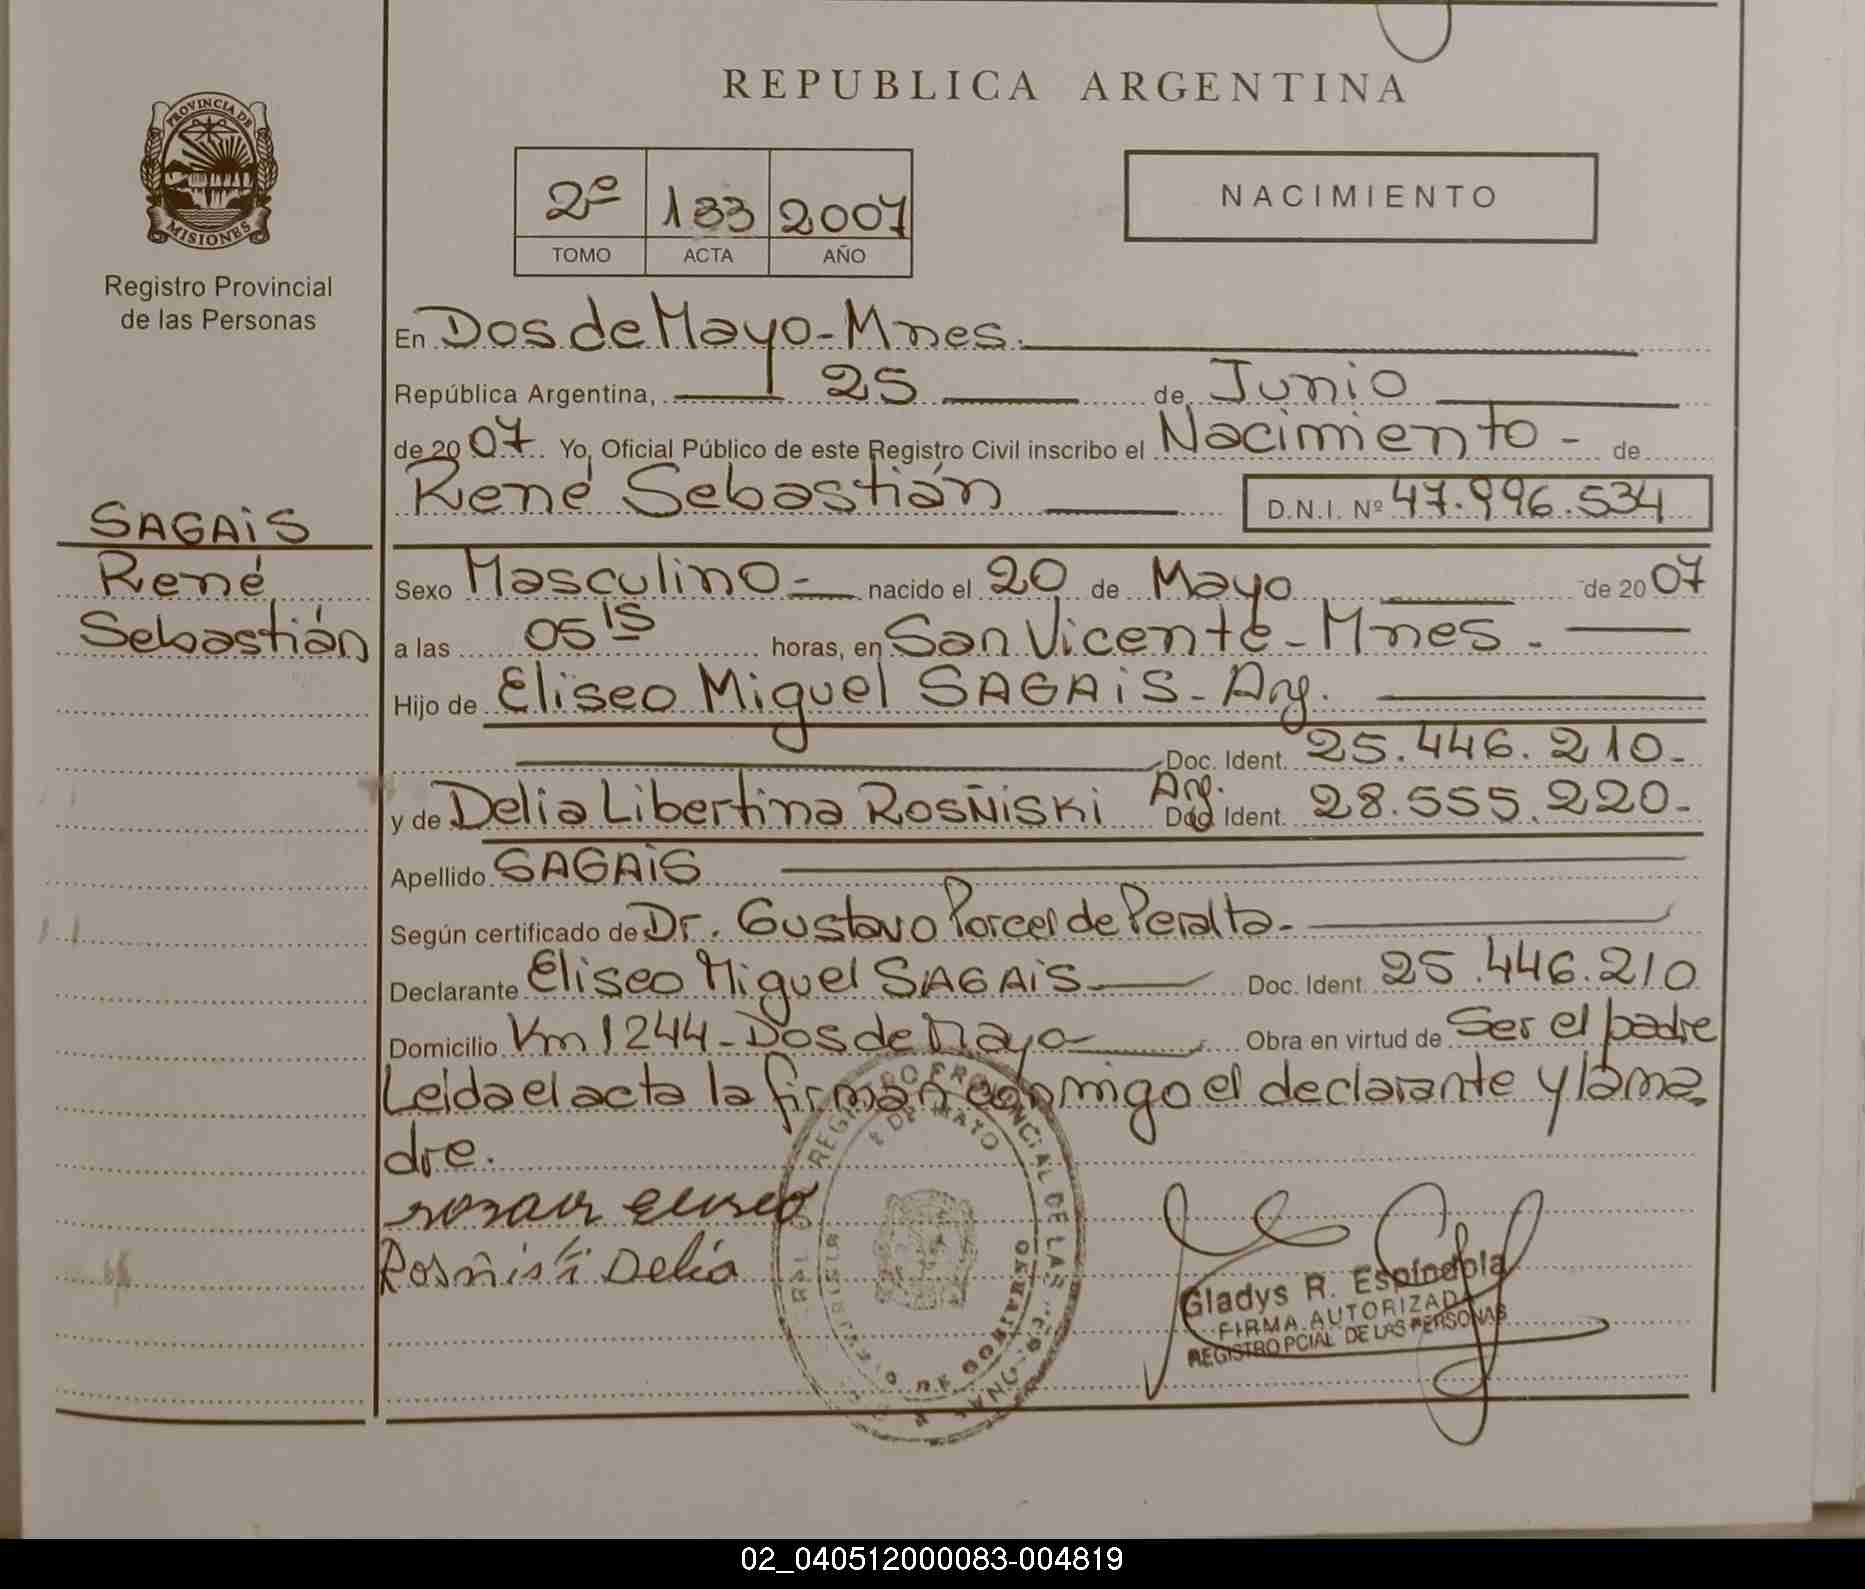 REPUBLICA ARGENTINA
PROVINCIA DE
MISIONES
Registro Provincial
de las Personas
2º 133 2007
TOMO ACTA AÑO
NACIMIENTO
En Dos de Mayo - Mnes.
República Argentina, 25 de Junio
de 2007 Yo, Oficial Público de este Registro Civil inscribo el Nacimiento - de
René Sebastián D.N.I. Nº 47.996.534
SAGAiS
René
Sebastián
Sexo Masculino - nacido el 20 de Mayo de 2007
a las 05 15 horas, en San Vicente - Mnes -
Hijo de Eliseo Miguel SAGAiS - Arg.
Doc. Ident. 25.446.210-
y de Delia Libertina ROSÑiSKi Arg. Doc. Ident. 28.555.220-
Apellido SAGAiS
Según certificado de Dr. Gustavo Porcel de Peralta -
Declarante Eliseo Miguel SAGAiS Doc. Ident. 25.446.210
Domicilio Km 1244 - Dos de Mayo Obra en virtud de Ser el padre
Leida el acta la firman conmigo el declarante y la ma
dre.
Rosñiski Delia
REGISTRO PROVINCIAL DE LAS
2 DE MAYO
Gladys R. Espindola
FIRMA AUTORIZADA
REGISTRO PCIAL DE LAS PERSONAS
02_040512000083-004819